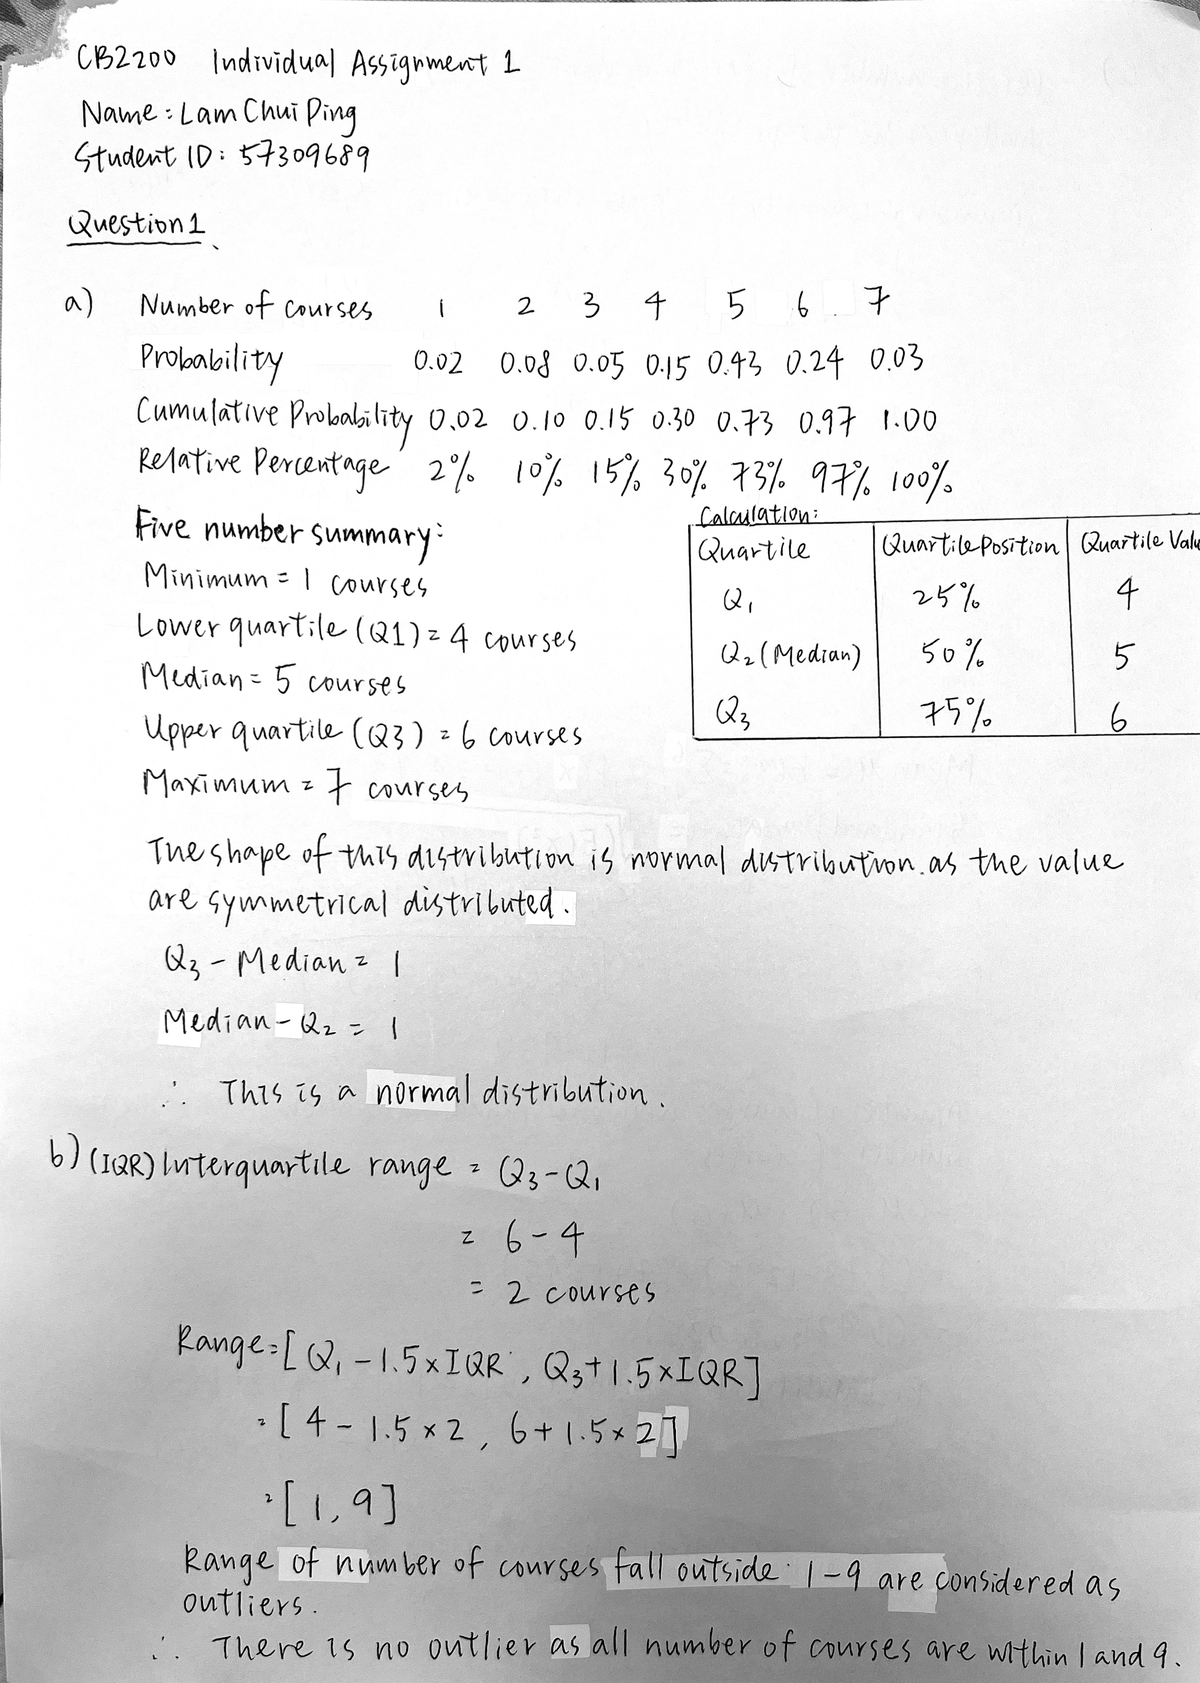 CB2200 Individual Assignment 1
Name : Lam Chui Ping
Student ID : 57309689
Question 1
a) Number of courses 1 2 3 4 5 6 7
Probability 0.02 0.08 0.05 0.15 0.43 0.24 0.03
Cumulative Probability 0.02 0.10 0.15 0.30 0.73 0.97 1.00
Relative Percentage 2% 10% 15% 30% 73% 97% 100%
Five number summary:
Minimum = 1 courses
Lower quartile (Q1) = 4 courses
Median = 5 courses
Upper quartile (Q3) = 6 courses
Maximum = 7 courses
Calculation:
Quartile Quartile Position Quartile Valu
Q₁ 25% 4
Q₂ (Median) 50% 5
Q₃ 75% 6
The shape of this distribution is normal distribution. as the value
are symmetrical distributed.
Q₃ - Median = 1
Median - Q₂ = 1
∴ This is a normal distribution.
b) (IQR) Interquartile range = Q₃ - Q₁
= 6 - 4
= 2 courses
Range = [ Q₁ - 1.5 x IQR , Q₃ + 1.5 x IQR ]
= [ 4 - 1.5 x 2 , 6 + 1.5 x 2 ]
= [ 1, 9 ]
Range of number of courses fall outside 1 - 9 are considered as
outliers.
∴ There is no outlier as all number of courses are within 1 and 9.